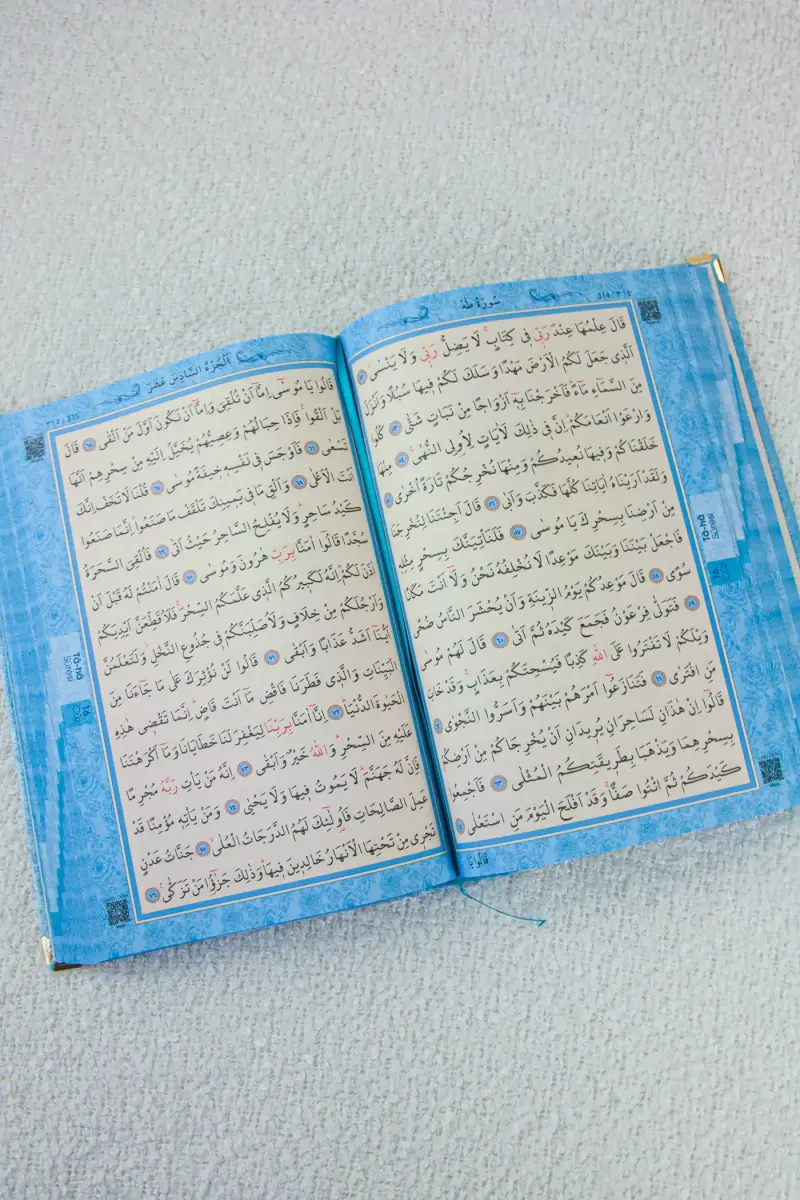 سُورَةُ طٰهٰ
314/٣١٤
قَالَ عِلْمُهَا عِنْدَ رَبّ۪ي ف۪ي كِتَابٍۚ لَا يَضِلُّ رَبّ۪ي وَلَا يَنْسٰىۘ ٥٢
اَلَّذ۪ي جَعَلَ لَكُمُ الْاَرْضَ مَهْدًا وَسَلَكَ لَكُمْ ف۪يهَا سُبُلًا وَاَنْزَلَ
مِنَ السَّمَٓاءِ مَٓاءًۜ فَاَخْرَجْنَا بِه۪ٓ اَزْوَاجًا مِنْ نَبَاتٍ شَتّٰى ٥٣ كُلُوا
وَارْعَوْا اَنْعَامَكُمْۜ اِنَّ ف۪ي ذٰلِكَ لَاٰيَاتٍ لِاُو۬لِي النُّهٰى۟ ٥٤ مِنْهَا
خَلَقْنَاكُمْ وَف۪يهَا نُع۪يدُكُمْ وَمِنْهَا نُخْرِجُكُمْ تَارَةً اُخْرٰى ٥٥
وَلَقَدْ اَرَيْنَاهُ اٰيَاتِنَا كُلَّهَا فَكَذَّبَ وَاَبٰى ٥٦ قَالَ اَجِئْتَنَا لِتُخْرِجَنَا
مِنْ اَرْضِنَا بِسِحْرِكَ يَا مُوسٰى ٥٧ فَلَنَأْتِيَنَّكَ بِسِحْرٍ مِثْلِه۪
فَاجْعَلْ بَيْنَنَا وَبَيْنَكَ مَوْعِدًا لَا نُخْلِفُهُ نَحْنُ وَلَٓا اَنْتَ مَكَانًا
سُوًى ٥٨ قَالَ مَوْعِدُكُمْ يَوْمُ الزّ۪ينَةِ وَاَنْ يُحْشَرَ النَّاسُ ضُحًى
٥٩ فَتَوَلّٰى فِرْعَوْنُ فَجَمَعَ كَيْدَهُ ثُمَّ اَتٰى ٦٠ قَالَ لَهُمْ مُوسٰى
وَيْلَكُمْ لَا تَفْتَرُوا عَلَى اللّٰهِ كَذِبًا فَيُسْحِتَكُمْ بِعَذَابٍۚ وَقَدْ خَابَ
مَنِ افْتَرٰى ٦١ فَتَنَازَعُٓوا اَمْرَهُمْ بَيْنَهُمْ وَاَسَرُّوا النَّجْوٰى ٦٢
قَالُٓوا اِنْ هٰذَانِ لَسَاحِرَانِ يُر۪يدَانِ اَنْ يُخْرِجَاكُمْ مِنْ اَرْضِكُمْ
بِسِحْرِهِمَا وَيَذْهَبَا بِطَر۪يقَتِكُمُ الْمُثْلٰى ٦٣ فَاَجْمِعُوا
كَيْدَكُمْ ثُمَّ ائْتُوا صَفًّاۚ وَقَدْ اَفْلَحَ الْيَوْمَ مَنِ اسْتَعْلٰى ٦٤
قَالُوا يَا
Tâ-hâ
Sûresi
اَلْجُزْءُ السَّادِسَ عَشَرَ
٣١٥/315
قَالُوا يَا مُوسٰٓى اِمَّٓا اَنْ تُلْقِيَ وَاِمَّٓا اَنْ نَكُونَ اَوَّلَ مَنْ اَلْقٰى ٦٥ قَالَ
بَلْ اَلْقُواۚ فَاِذَا حِبَالُهُمْ وَعِصِيُّهُمْ يُخَيَّلُ اِلَيْهِ مِنْ سِحْرِهِمْ اَنَّهَا
تَسْعٰى ٦٦ فَاَوْجَسَ ف۪ي نَفْسِه۪ خ۪يفَةً مُوسٰى ٦٧ قُلْنَا لَا تَخَفْ اِنَّكَ
اَنْتَ الْاَعْلٰى ٦٨ وَاَلْقِ مَا ف۪ي يَم۪ينِكَ تَلْقَفْ مَا صَنَعُواۜ اِنَّمَا صَنَعُوا
كَيْدُ سَاحِرٍۜ وَلَا يُفْلِحُ السَّاحِرُ حَيْثُ اَتٰى ٦٩ فَاُلْقِيَ السَّحَرَةُ
سُجَّدًا قَالُٓوا اٰمَنَّا بِرَبِّ هٰرُونَ وَمُوسٰى ٧٠ قَالَ اٰمَنْتُمْ لَهُ قَبْلَ اَنْ
اٰذَنَ لَكُمْۜ اِنَّهُ لَكَب۪يرُكُمُ الَّذ۪ي عَلَّمَكُمُ السِّحْرَۚ فَلَاُقَطِّعَنَّ اَيْدِيَكُمْ
وَاَرْجُلَكُمْ مِنْ خِلَافٍ وَلَاُصَلِّبَنَّكُمْ ف۪ي جُذُوعِ النَّخْلِۘ وَلَتَعْلَمُنَّ
اَيُّنَٓا اَشَدُّ عَذَابًا وَاَبْقٰى ٧١ قَالُوا لَنْ نُؤْثِرَكَ عَلٰى مَا جَٓاءَنَا مِنَ
الْبَيِّنَاتِ وَالَّذ۪ي فَطَرَنَا فَاقْضِ مَٓا اَنْتَ قَاضٍۜ اِنَّمَا تَقْض۪ي هٰذِهِ
الْحَيٰوةَ الدُّنْيَاۜ ٧٢ اِنَّٓا اٰمَنَّا بِرَبِّنَا لِيَغْفِرَ لَنَا خَطَايَانَا وَمَٓا اَكْرَهْتَنَا
عَلَيْهِ مِنَ السِّحْرِۜ وَاللّٰهُ خَيْرٌ وَاَبْقٰى ٧٣ اِنَّهُ مَنْ يَأْتِ رَبَّهُ مُجْرِمًا
فَاِنَّ لَهُ جَهَنَّمَۜ لَا يَمُوتُ ف۪يهَا وَلَا يَحْيٰى ٧٤ وَمَنْ يَأْتِه۪ مُؤْمِنًا قَدْ
عَمِلَ الصَّالِحَاتِ فَاُو۬لٰٓئِكَ لَهُمُ الدَّرَجَاتُ الْعُلٰىۙ ٧٥ جَنَّاتُ عَدْنٍ
تَجْر۪ي مِنْ تَحْتِهَا الْاَنْهَارُ خَالِد۪ينَ ف۪يهَاۜ وَذٰلِكَ جَزٰٓؤُ۬ا مَنْ تَزَكّٰى۟ ٧٦
Tâ-hâ
Sûresi
16
Cüz